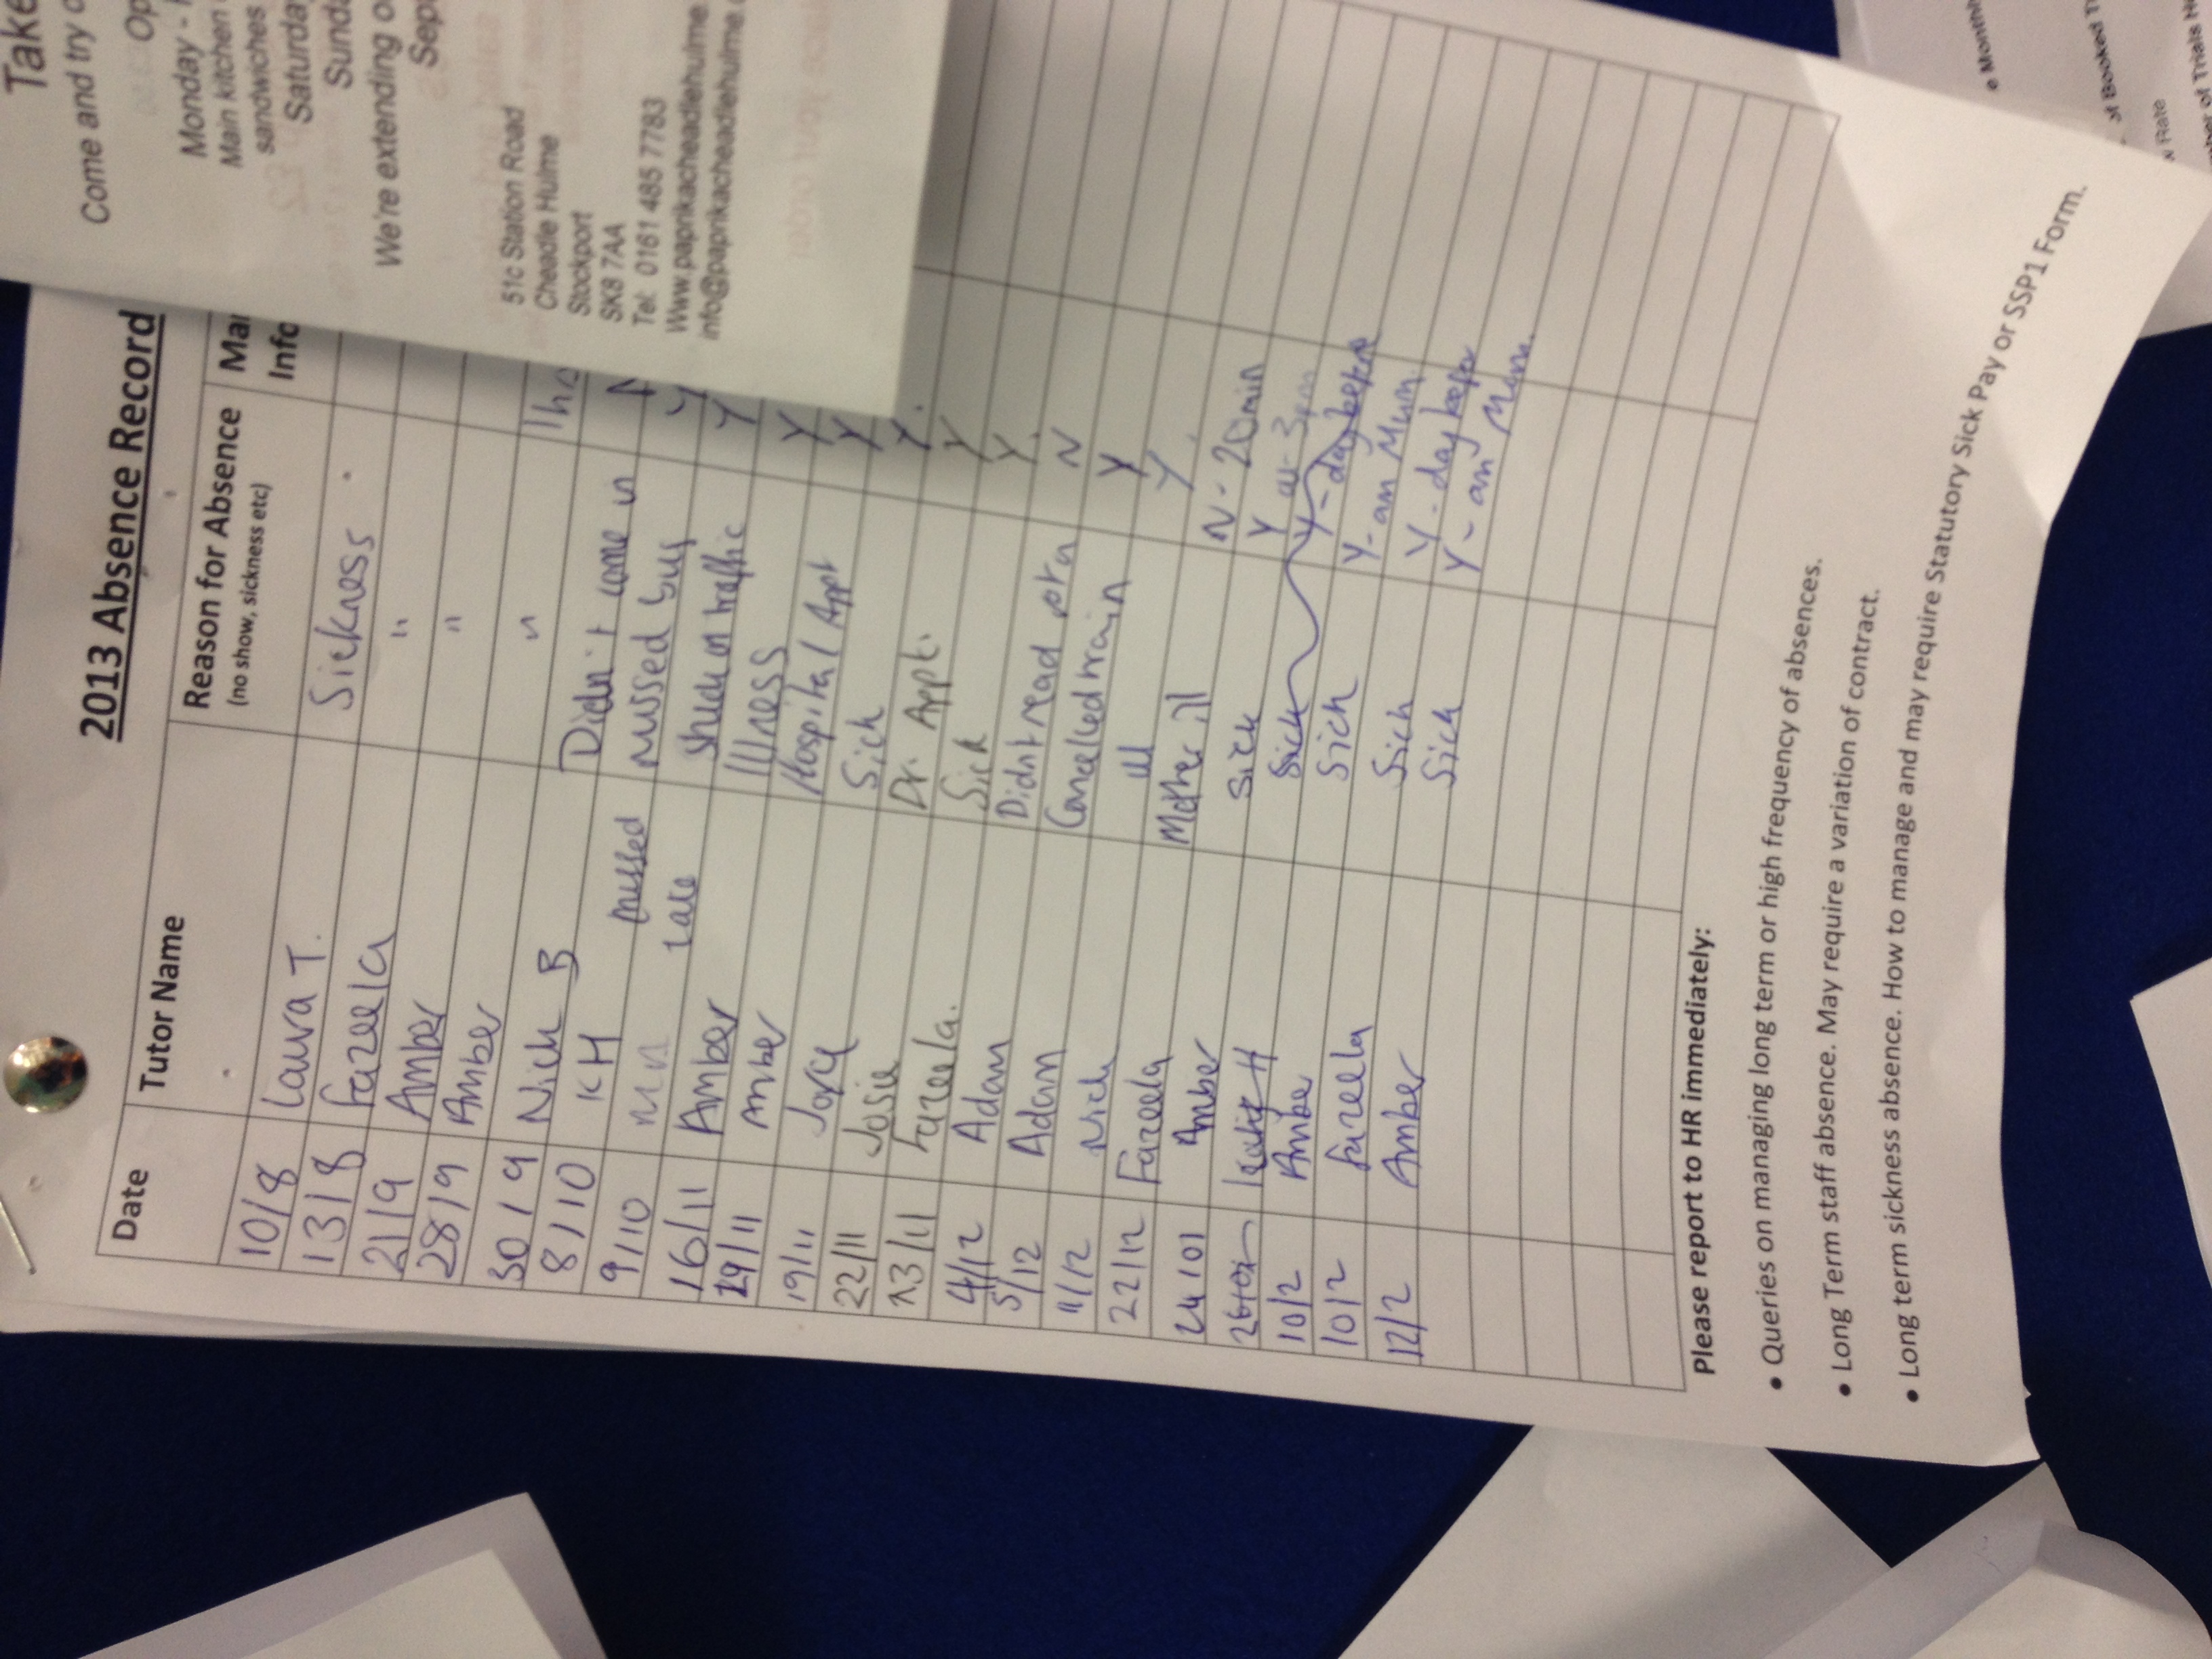 2013 Absence Record
Date Tutor Name Reason for Absence
(no show, sickness etc)
Info
10/8 Laura T. Sickness.
13/8 Fazeela "
21/9 Amber "
28/9 Amber "
30/9 Nich B Didn't come in
8/10 KH missed missed bus
9/10 Late stuck in traffic
16/11 Amber Illness Y
19/11 Amber Hospital Appt Y
19/11 Sick Y
22/11 Josie Dr. Appt. Y.
23/11 Fazeela. Sick Y
4/12 Adam Didnt read rota Y.
5/12 Adam Cancelled train N
11/12 Nich ill Y
22/12 Fazeela Mother ill Y
24/01 Amber Sick N - 20min
Katie H Sick Y 3pm
10/2 Amber Sick Y - day before
Y - am Mum.
10/2 Fazeela Sich Y - day before
12/2 Amber Sick Y - am Mum.
Please report to HR immediately:
• Queries on managing long term or high frequency of absences.
• Long Term staff absence. May require a variation of contract.
• Long term sickness absence. How to manage and may require Statutory Sick Pay or SSP1 Form.
Take
Come and try
Op
Monday -
Main kitchen
sandwiches
Saturday
Sunda
We're extending
Sep
51c Station Road
Cheadle Hulme
Stockport
SK8 7AA
Tel: 0161 485 7783
Www.paprikacheadlehulme.
info@paprikacheadlehulme.
e Monthly
of Booked
of Trials
Rate